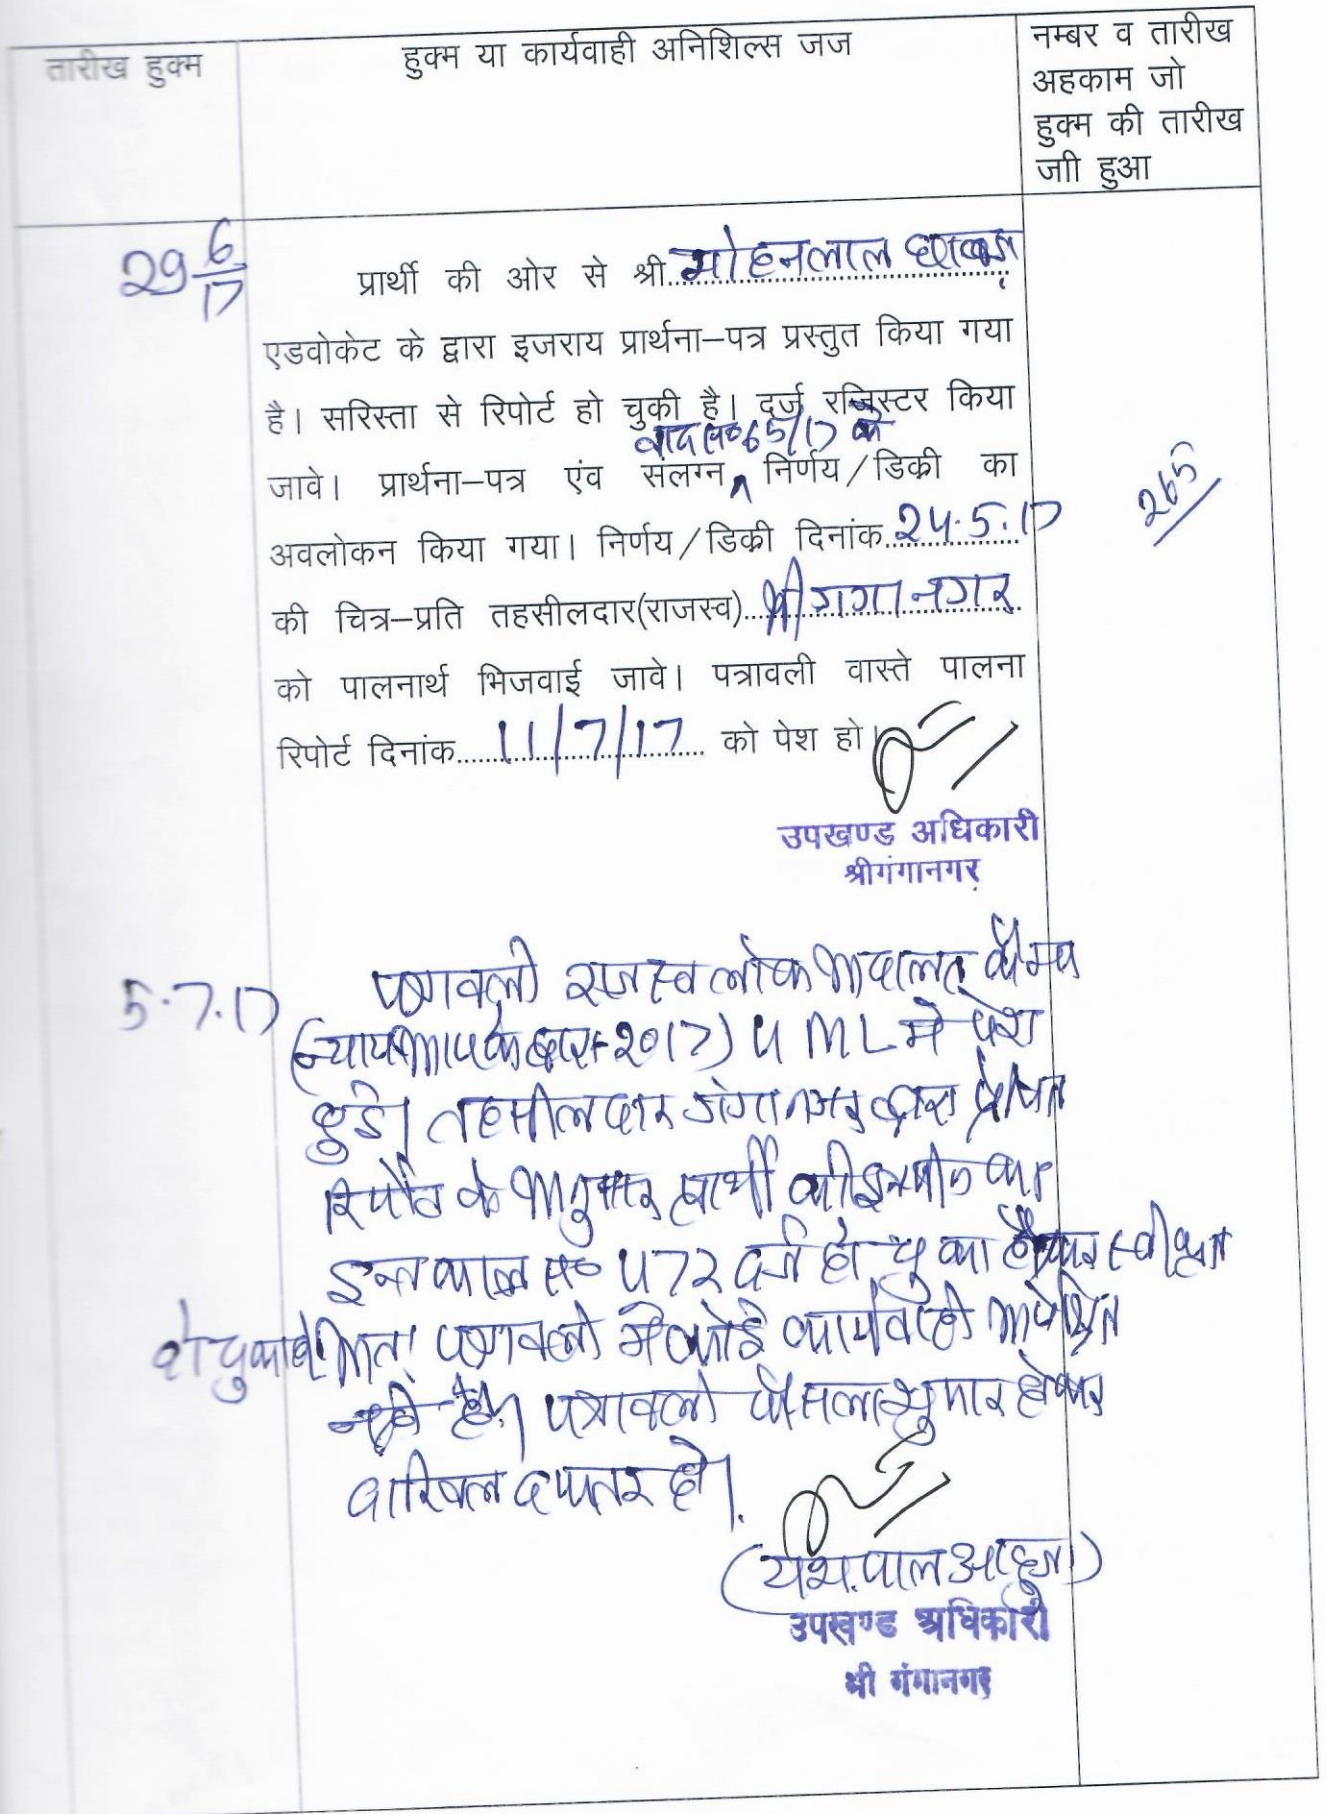 तारीख हुक्म
हुक्म या कार्यवाही अनिशिल्स जज
नम्बर व तारीख
अहकाम जो
हुक्म की तारीख
जाी हुआ
29 6/17
प्रार्थी की ओर से श्री मोहनलाल
एडवोकेट के द्वारा इजराय प्रार्थना–पत्र प्रस्तुत किया गया
है। सरिस्ता से रिपोर्ट हो चुकी है। दर्ज रजिस्टर किया
वाद स० 65/17 के
जावे। प्रार्थना–पत्र एंव संलग्न ^ निर्णय/डिक्री का
अवलोकन किया गया। निर्णय/डिक्री दिनांक 24.5.17
265
की चित्र–प्रति तहसीलदार(राजस्व) श्रीगंगानगर
को पालनार्थ भिजवाई जावे। पत्रावली वास्ते पालना
रिपोर्ट दिनांक 11/7/17 को पेश हो।
उपखण्ड अधिकारी
श्रीगंगानगर
5.7.17
पत्रावली राजस्व लोक अदालत कैम्प
(न्याय आपके द्वार-2017) 4 ML मे पेश
हुई। तहसीलदार गंगानगर द्वारा प्रेषित
रिपोर्ट के अनुसार प्रार्थी की इजराय का
इन्तकाल स० 472 दर्ज हो चुका है स्वीकृत
हो चुका है। अतः पत्रावली मे कोई कार्यवाही अपेक्षित
नही है। पत्रावली फैसला शुमार होकर
दाखिल दफ्तर हो।
(यशपाल आहूजा)
उपखण्ड अधिकारी
श्री गंगानगर